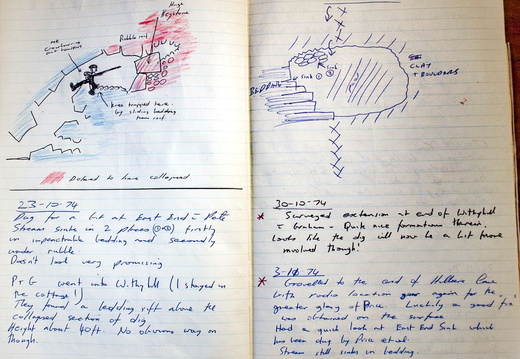 Huge
Keystone
Rubble roof
me
crowbarring
out
knee trapped here
by sliding bedding
from roof.
Deemed to have collapsed
23-10-74
Dug for a bit at East End
Stream sinks in 2 places ①② firstly
in impenetrable bedding and secondly
under rubble
Doesn't look very promising
P + G went into Withyhill (I stayed in
the cottage!)
They found a bedding rift above the
collapsed section of dig
Height about 40ft No obvious way on
though.
Sink ①
CLAY
+ BOULDERS
BEDDING
30-10-74
Surveyed extension at end of Withyhill
Graham - Quite nice formations therein.
Looks like the dig will now be a bit more
involved though!
74
Grovelled to the end of Hilliers Cave
with radio location gear again for the
greater glory of Price. Luckily a good "fix"
was obtained on the surface
Had a quick look at East End Sink which
has been dug by Price et al.
Stream still sinks in bedding.